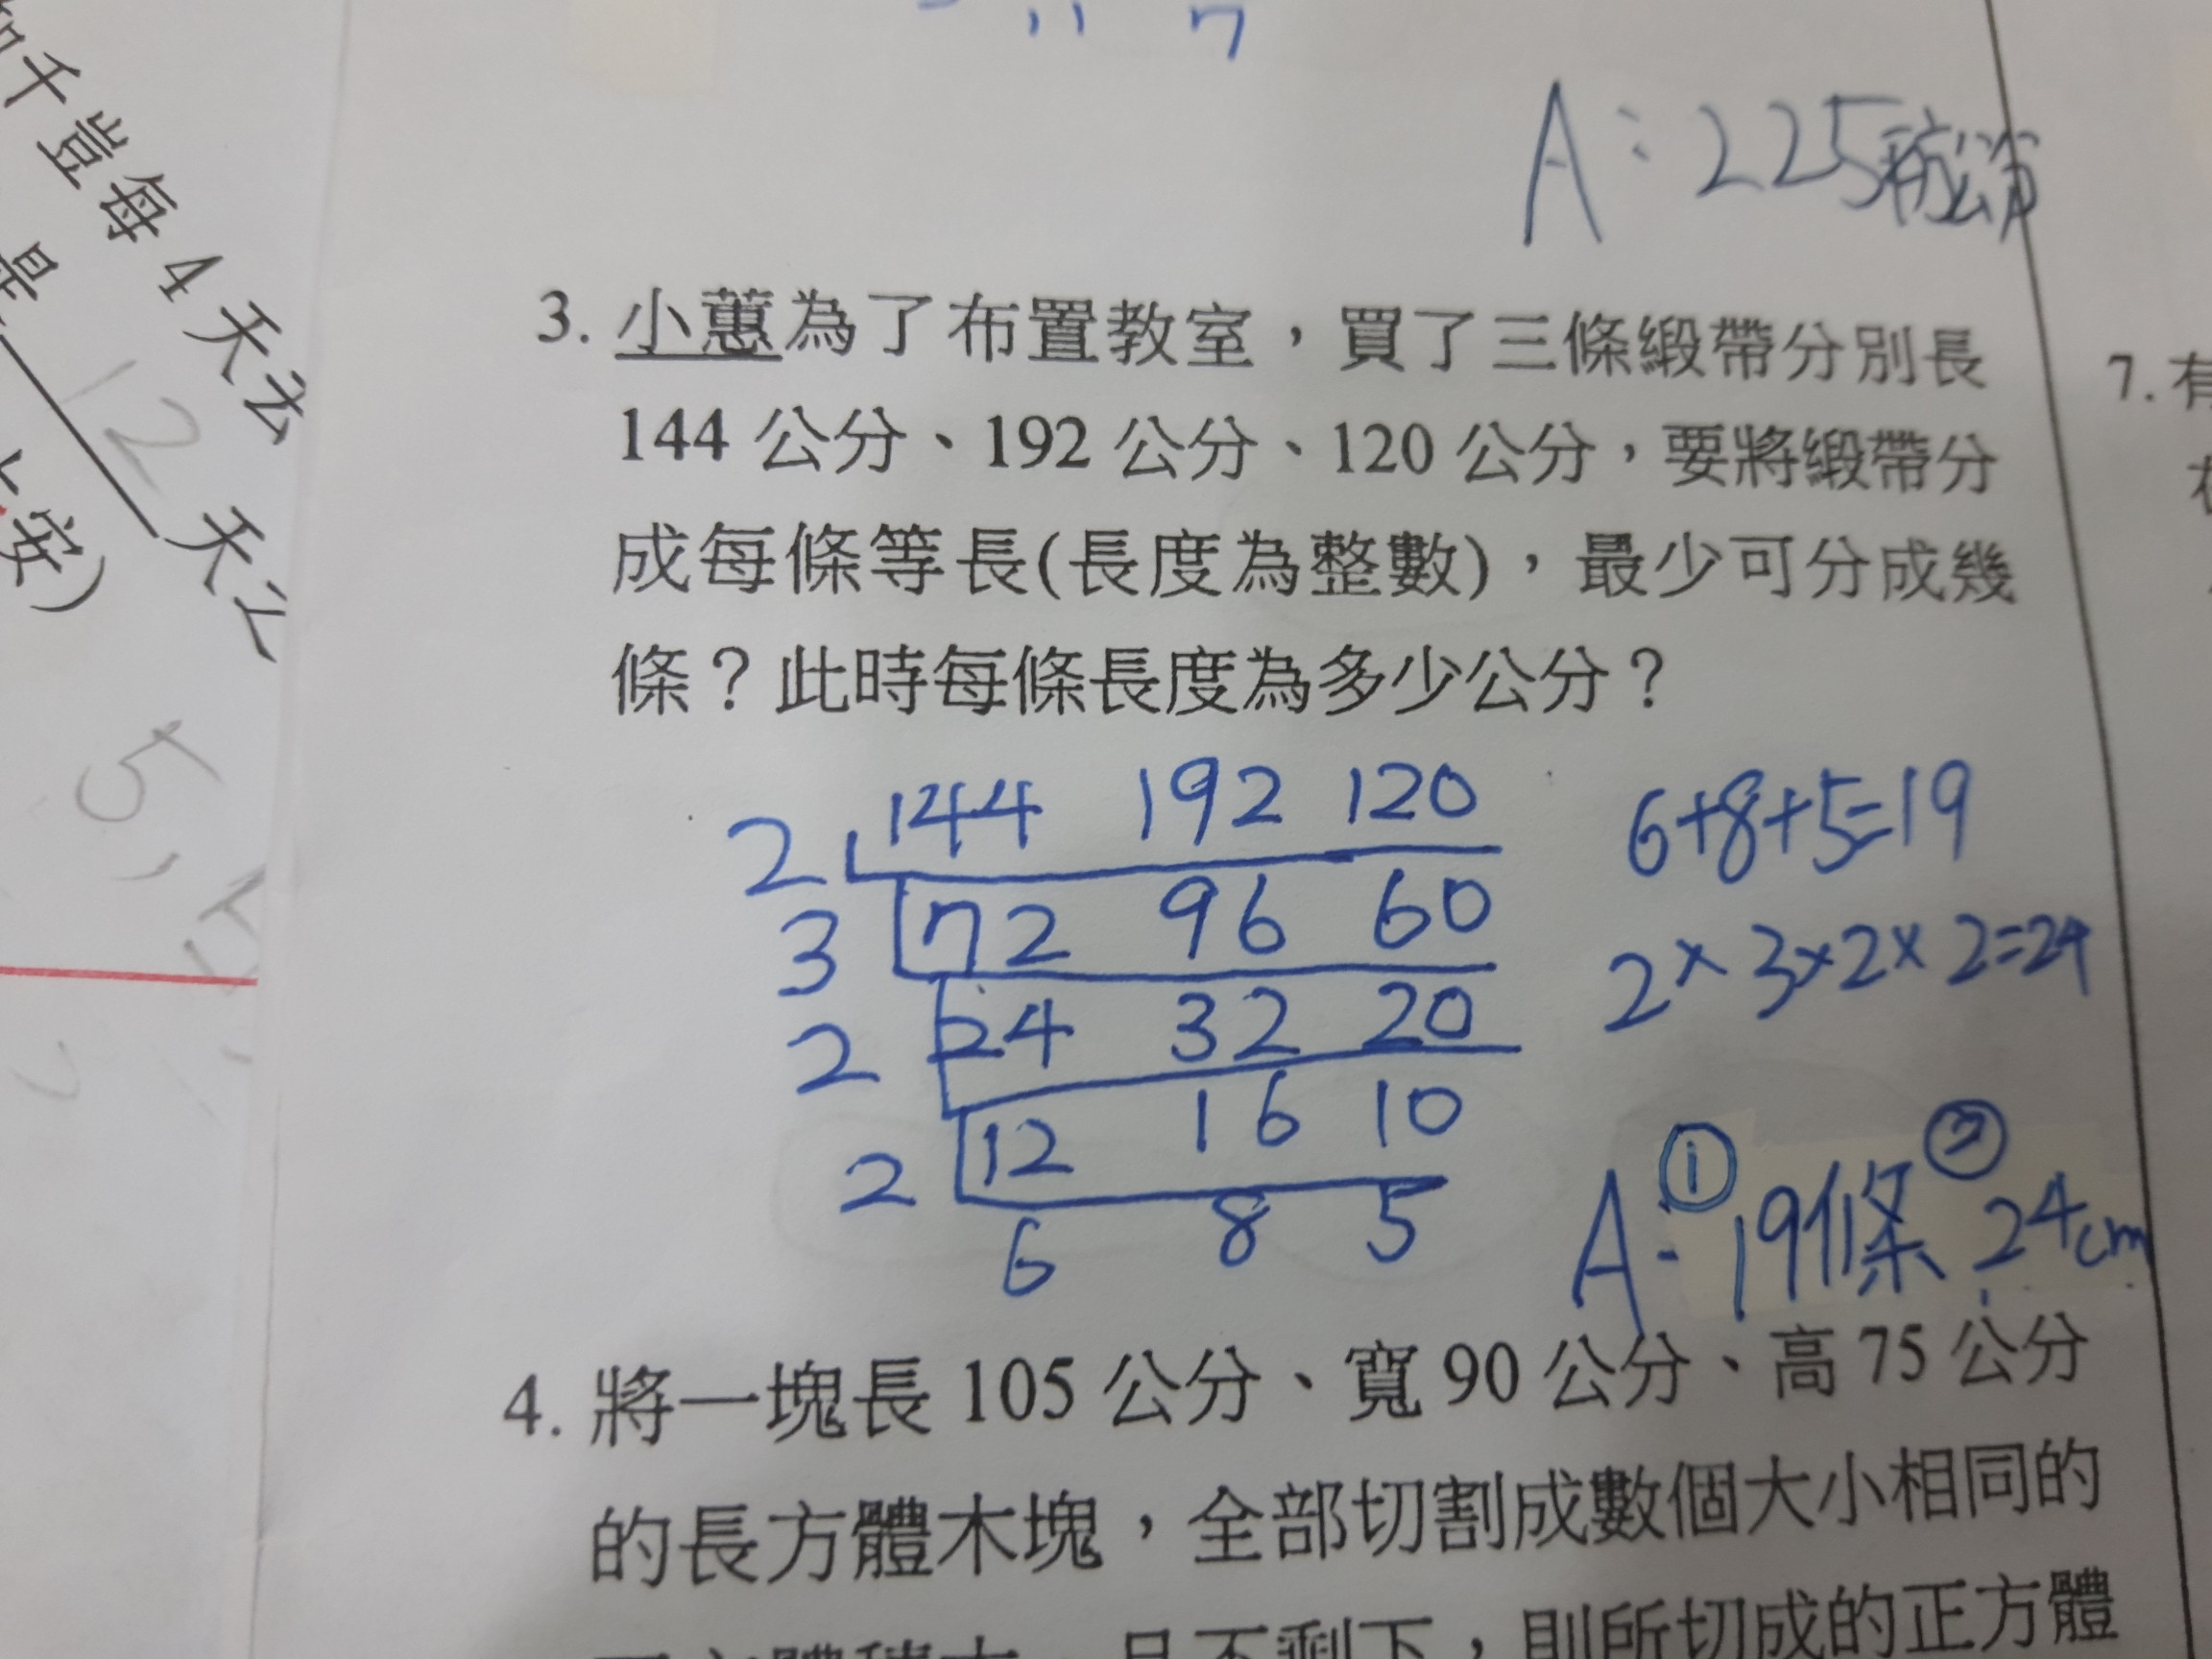 千豈每4天公
12天公
安)
5,
7
A:225
3. 小蕙為了布置教室，買了三條緞帶分別長
144 公分、192 公分、120 公分，要將緞帶分
成每條等長(長度為整數)，最少可分成幾
條？此時每條長度為多少公分？
2 144 192 120
3 72 96 60
2 24 32 20
2 12 16 10
6 8 5
6+8+5=19
2×3×2×2=24
A:①19條②24cm
4. 將一塊長 105 公分、寬 90 公分、高 75 公分
的長方體木塊，全部切割成數個大小相同的
則所切成的正方體
7. 有